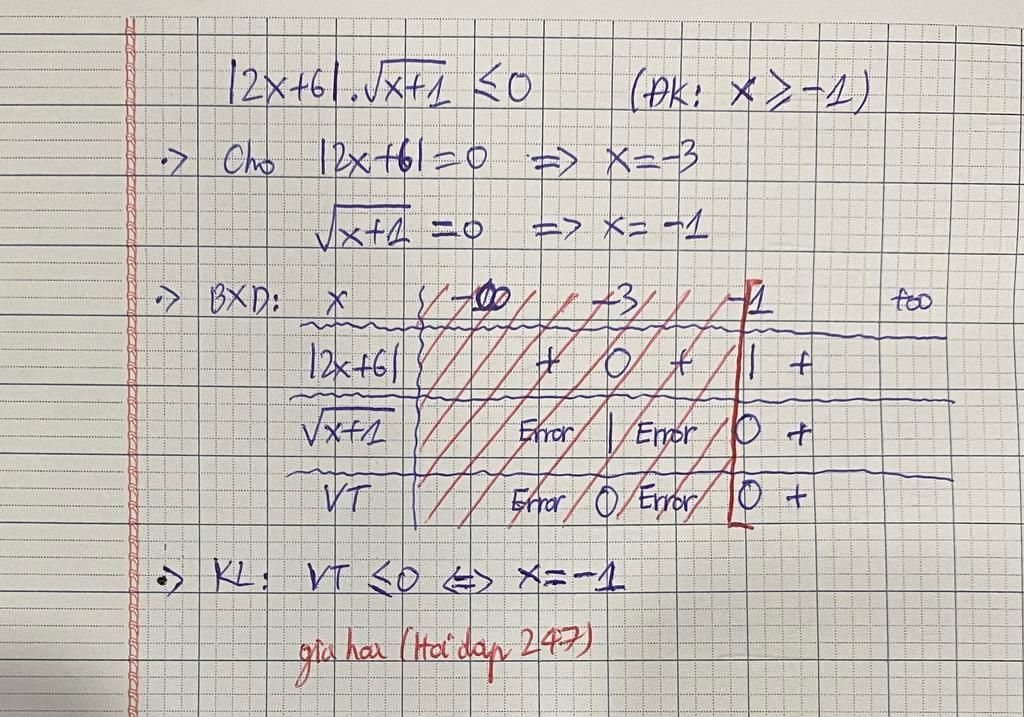 |2x+6|.√(x+1) ≤ 0 (ĐK: x ≥ -1)
·> Cho |2x+6| = 0 => x = -3
√(x+1) = 0 => x = -1
·> BXD: x -∞ -3 -1 +∞
|2x+6| + 0 + | +
√(x+1) Error | Error 0 +
VT Error 0 Error 0 +
·> KL: VT ≤ 0 <=> x = -1
gia hau (Hoidap 247)